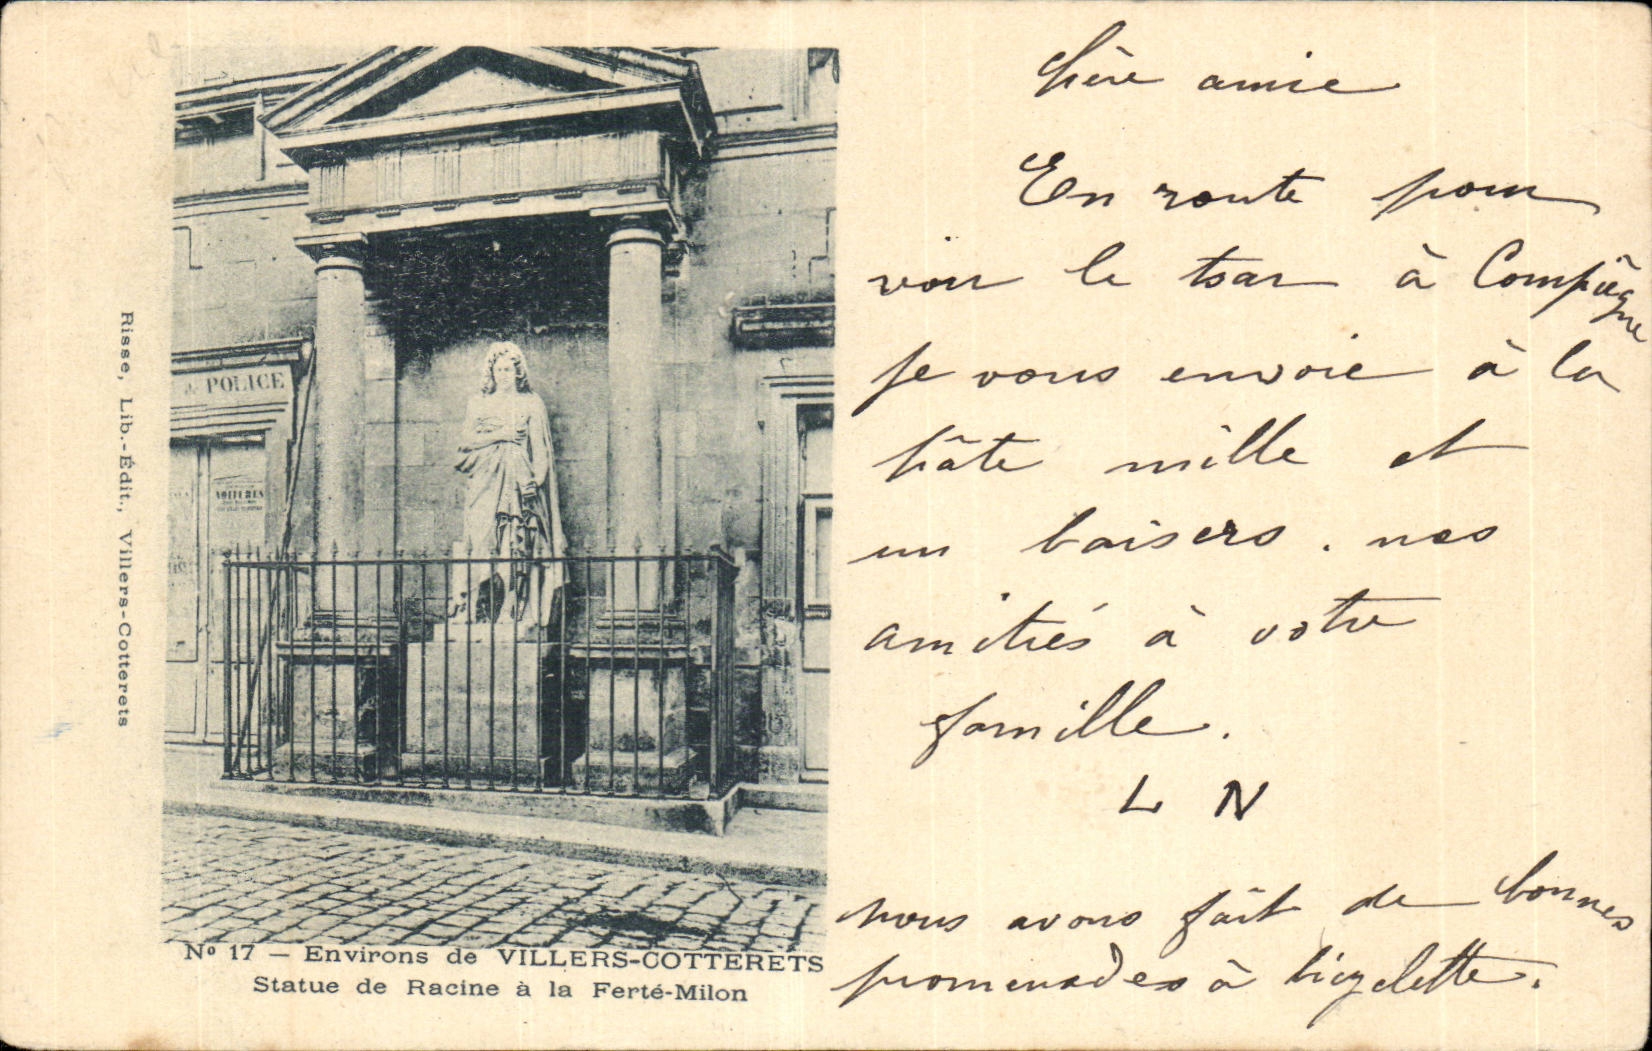 Chère amie
En route pour
voir le tsar à Compiègne
je vous envoie à la
hâte mille et
un baisers. nos
amitiés à votre
famille.
L N
nous avons fait de bonnes
promenades à bicyclette.
Risse, Lib.-Édit., Villers-Cotterets
POLICE
VOITURES
Nº 17 — Environs de VILLERS-COTTERETS
Statue de Racine à la Ferté-Milon